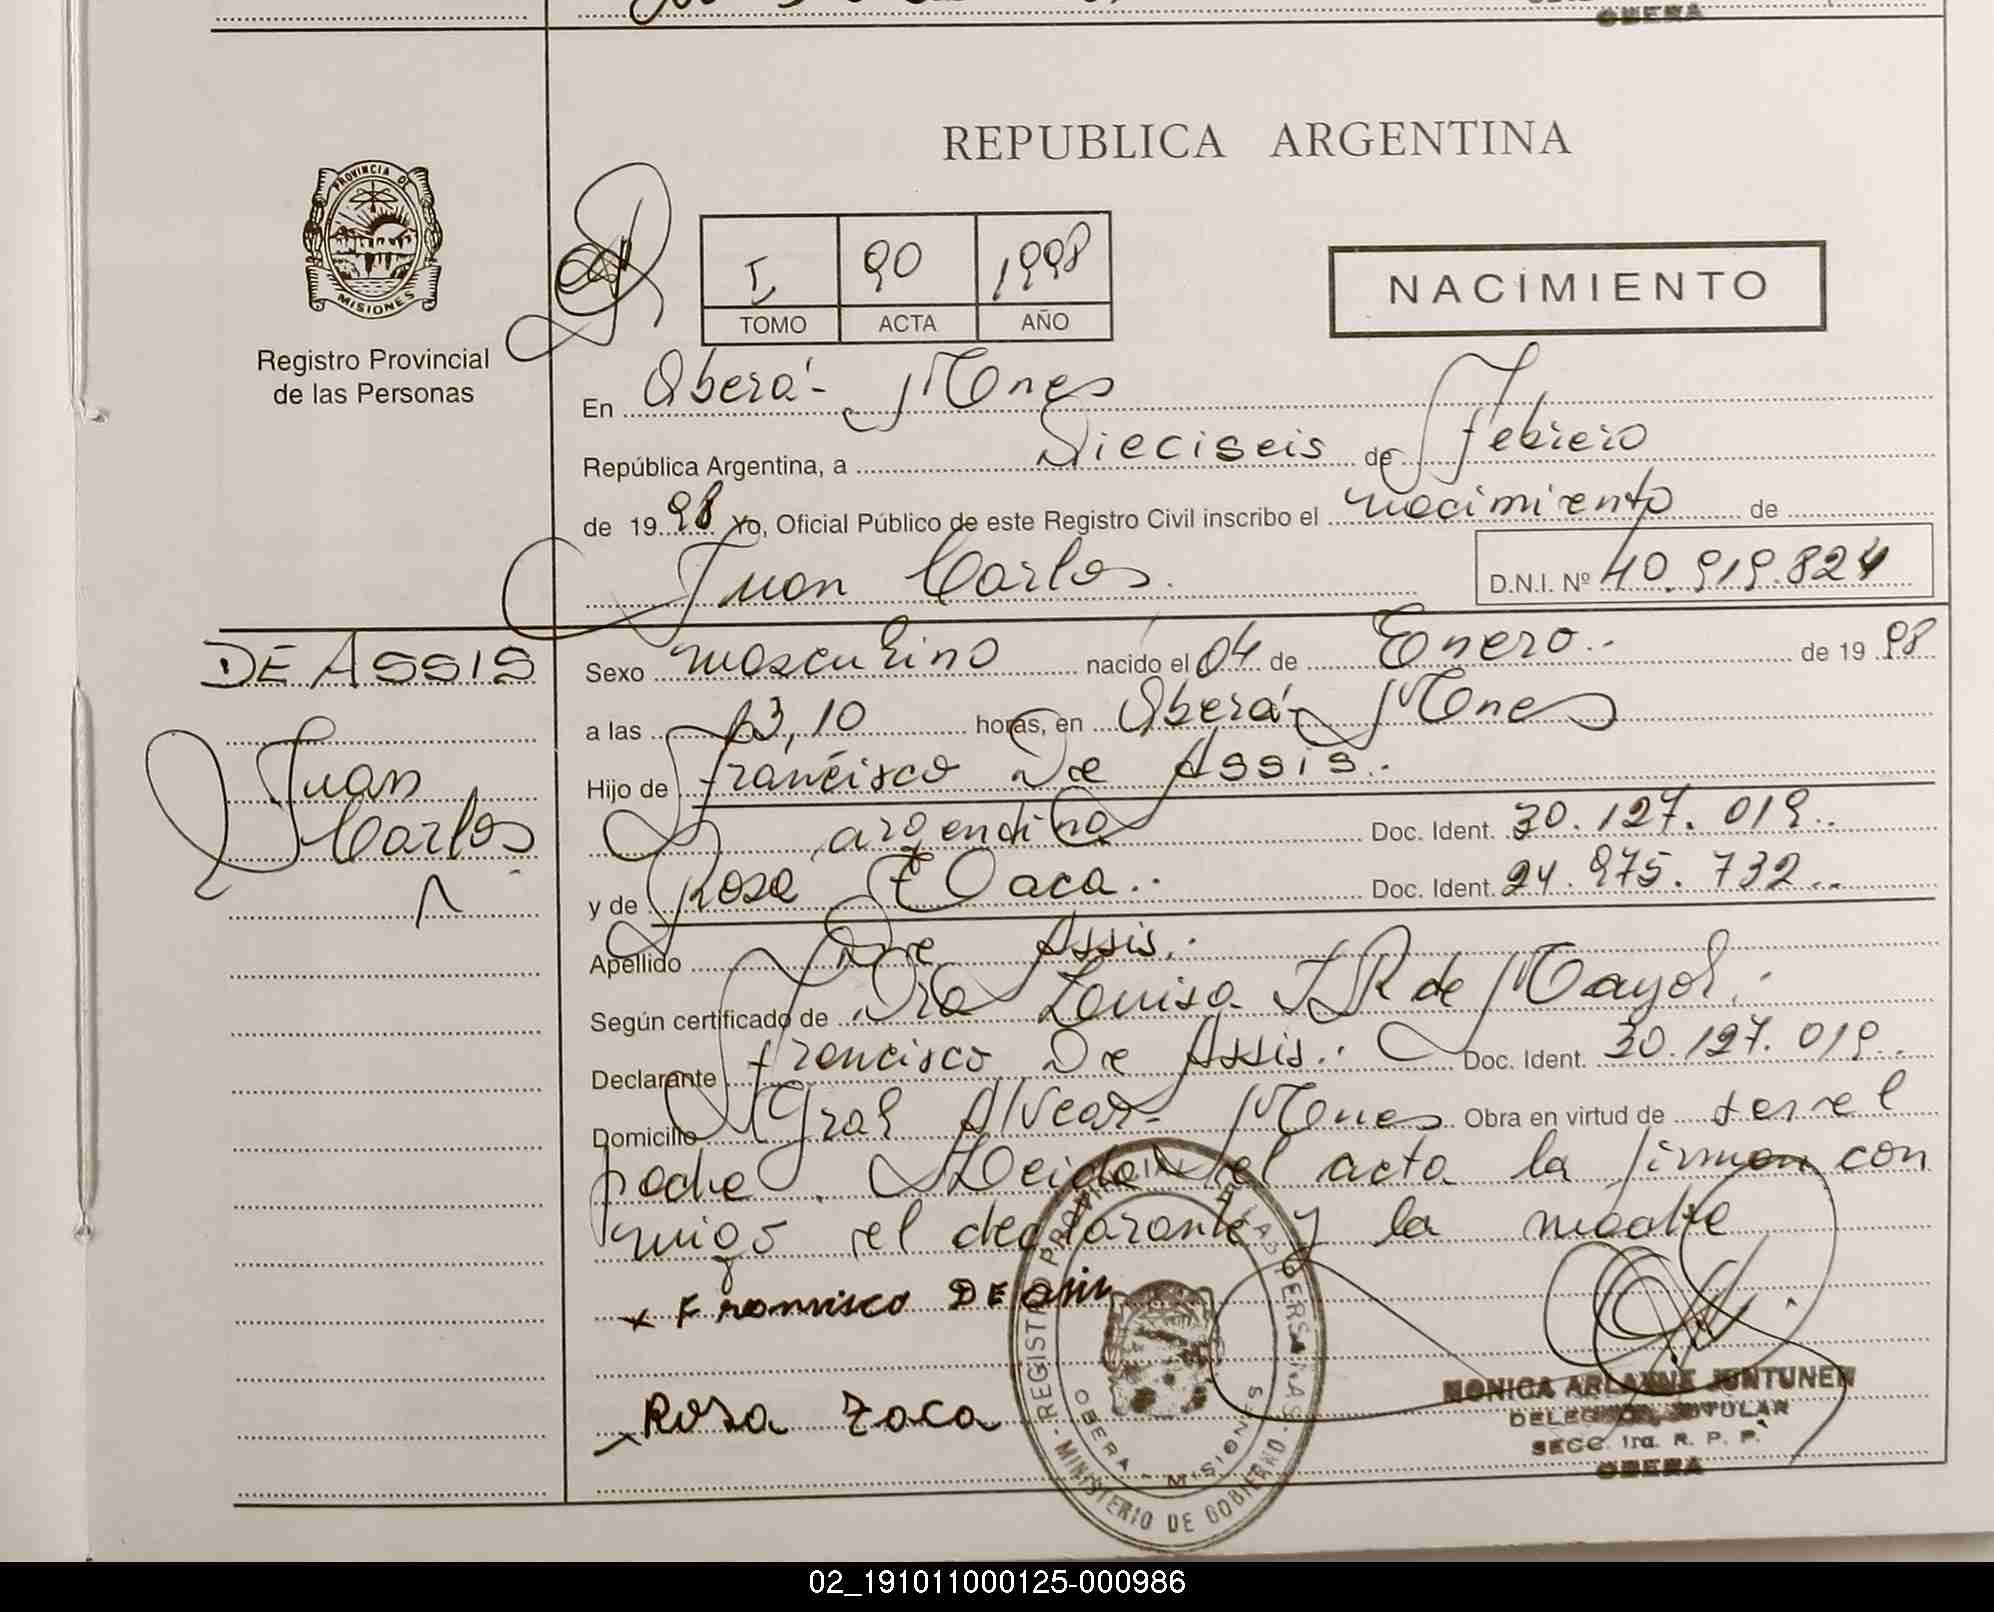 OBERA
REPUBLICA ARGENTINA
PROVINCIA DE
MISIONES
Registro Provincial
de las Personas
I 90 1998
TOMO ACTA AÑO
NACIMIENTO
En Oberá - Mones
República Argentina, a Dieciseis de febrero
de 1998 Yo, Oficial Público de este Registro Civil inscribo el nacimiento de
Juan Carlos. D.N.I. Nº 40.919.824
DE ASSIS
Juan
Carlos
Sexo masculino nacido el 04 de Enero.. de 1998
a las 13,10 horas, en Oberá - Mones
Hijo de francisco De Assis..
argentino Doc. Ident. 30.127.019..
y de Rosa Zaca.. Doc. Ident. 24.975.732..
Apellido De Assis..
Según certificado de Dra Louisa de Mayol..
Declarante francisco De Assis.. Doc. Ident. 30.127.019..
Domicilio Gral Alvear - Mones Obra en virtud de ser el
padre. Leida el acta la firman con
migo el declarante y la madre
x Francisco DE Asis
Rosa Zaca
REGISTRO PROVINCIAL DE LAS PERSONAS
OBERA - MISIONES
- MINISTERIO DE GOBIERNO -
MONICA ARLAYNE JUNTUNEN
TITULAR
SECC. 1ra. R. P. P.
OBERA
02_191011000125-000986